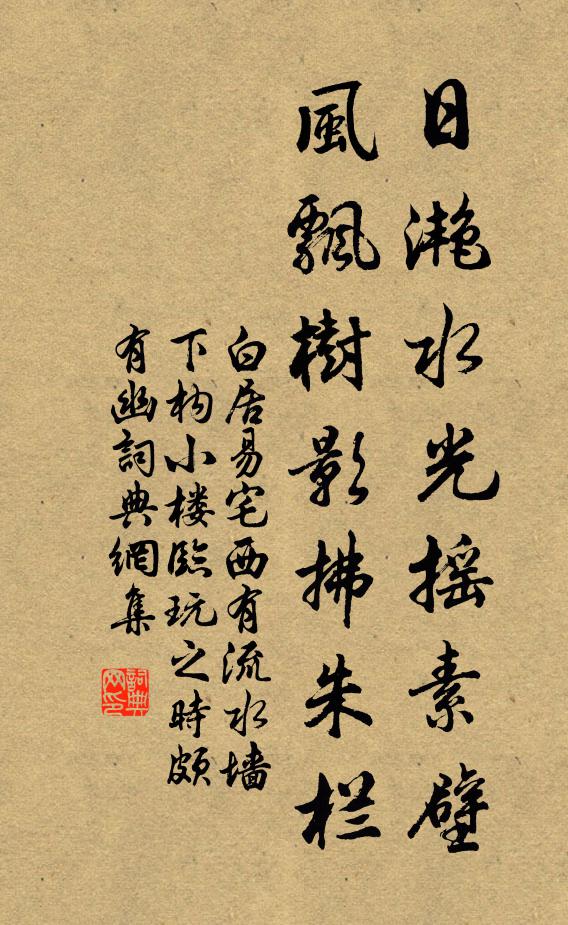 日滟水光摇素壁
風飄樹影拂朱栏
白居易宅西有流水墙
下构小楼臨玩之時頗
有幽詞典網集
詞典网印